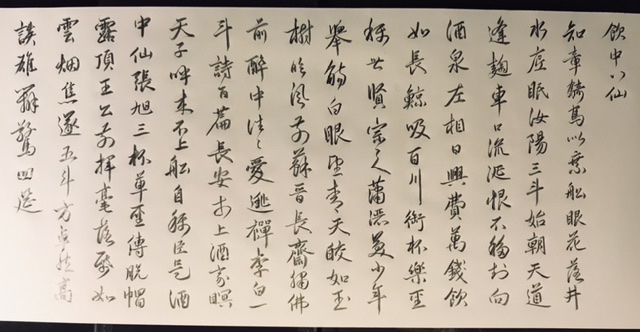 飲中八仙
知章騎馬似乘舩眼花落井
水底眠汝陽三斗始朝天道
逢麴車口流涎恨不移封向
酒泉左相日興費萬錢飲
如長鯨吸百川銜杯樂聖
稱世賢宗之蕭灑美少年
舉觴白眼望青天皎如玉
樹臨風前蘇晉長齋繡佛
前醉中往々愛逃禪李白一
斗詩百篇長安市上酒家瞑
天子呼來不上舩自稱臣是酒
中仙張旭三杯草聖傳脫帽
露頂王公前揮毫落紙如
雲烟焦遂五斗方卓然高
談雄辯驚四筵